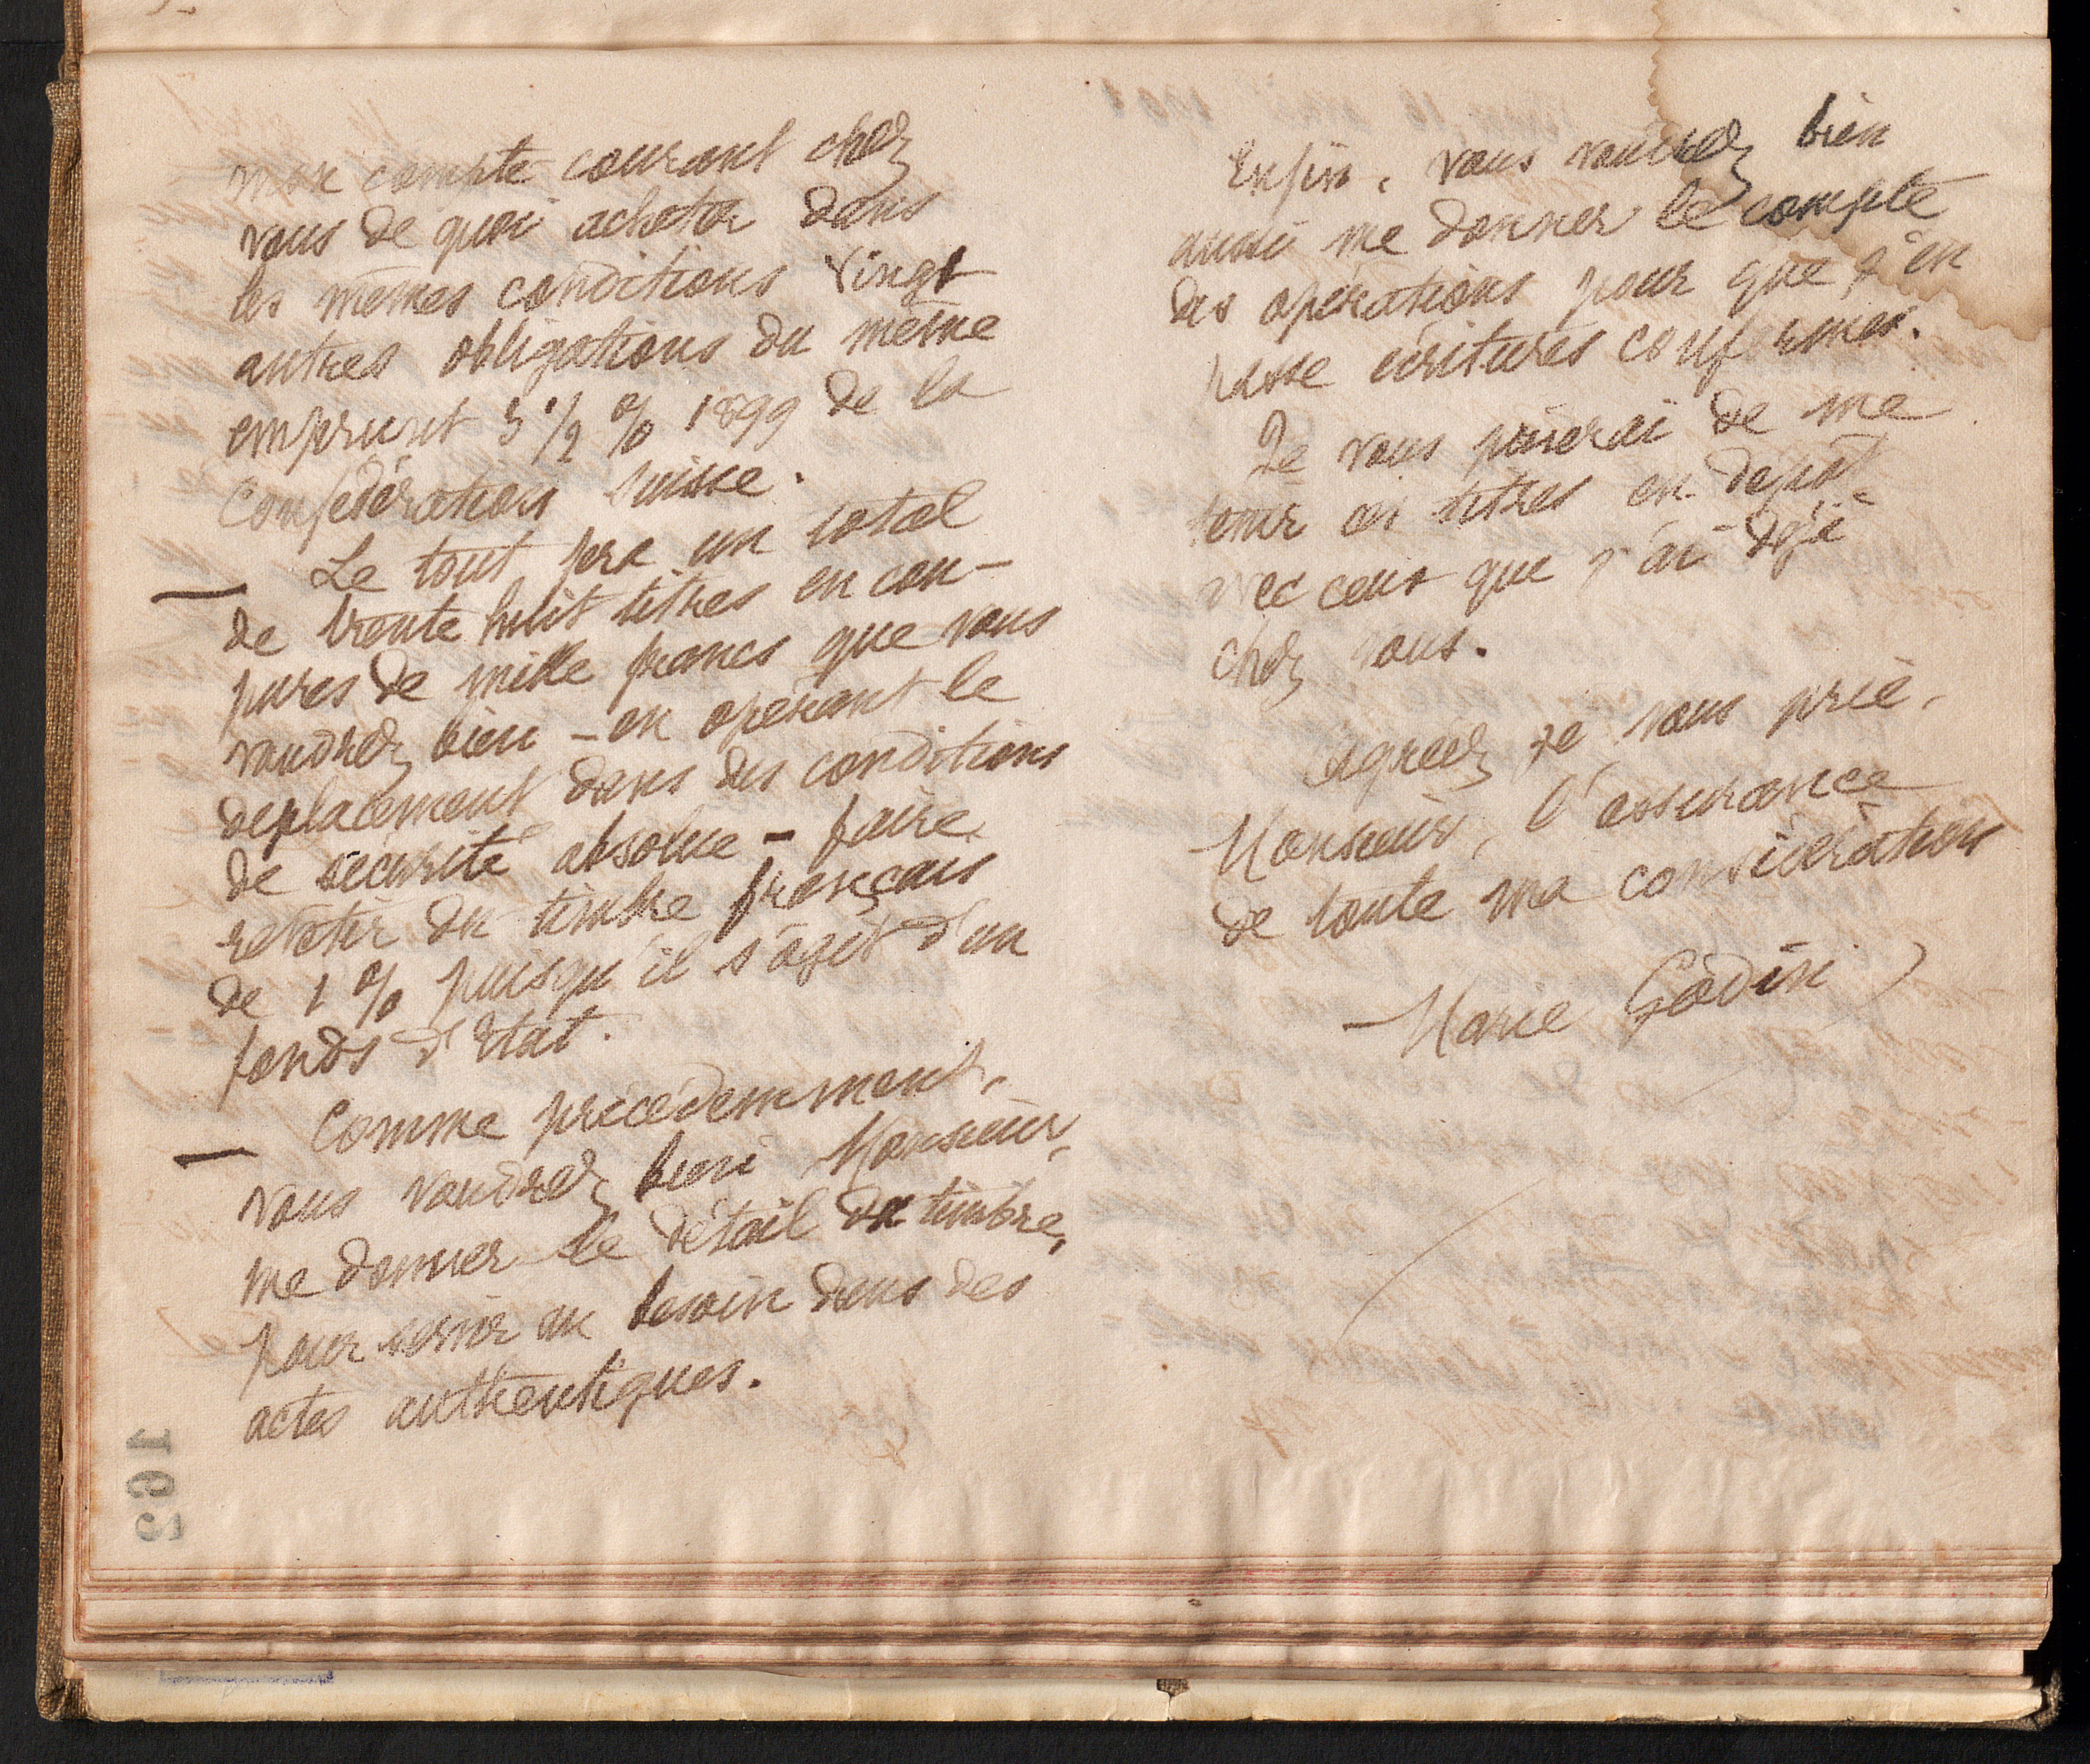 mon compte courant chez
vous de quoi acheter dans
les mêmes conditions vingt
autres obligations du même
emprunt 3 1/2 % 1899 de la
Confédération suisse.
— Le tout fera un total
de trente huit titres en cou-
pures de mille francs que vous
voudrez bien - en opérant le
déplacement dans des conditions
de sécurité absolue - faire
revêtir du timbre français
de 1 % puisqu'il s'agit d'un
fonds d'Etat.
— Comme précédemment,
vous voudrez bien Monsieur,
me donner le détail du timbre,
pour servir au besoin dans des
actes authentiques.
162
Enfin, vous voudrez bien
aussi me donner le compte
des opérations pour que j'en
passe écritures conformes.
Je vous prierai de me
tenir ces titres en dépôt
avec ceux que j'ai déjà
chez vous.
Agréez je vous prie,
Monsieur, l'assurance
de toute ma considération
Marie Godin